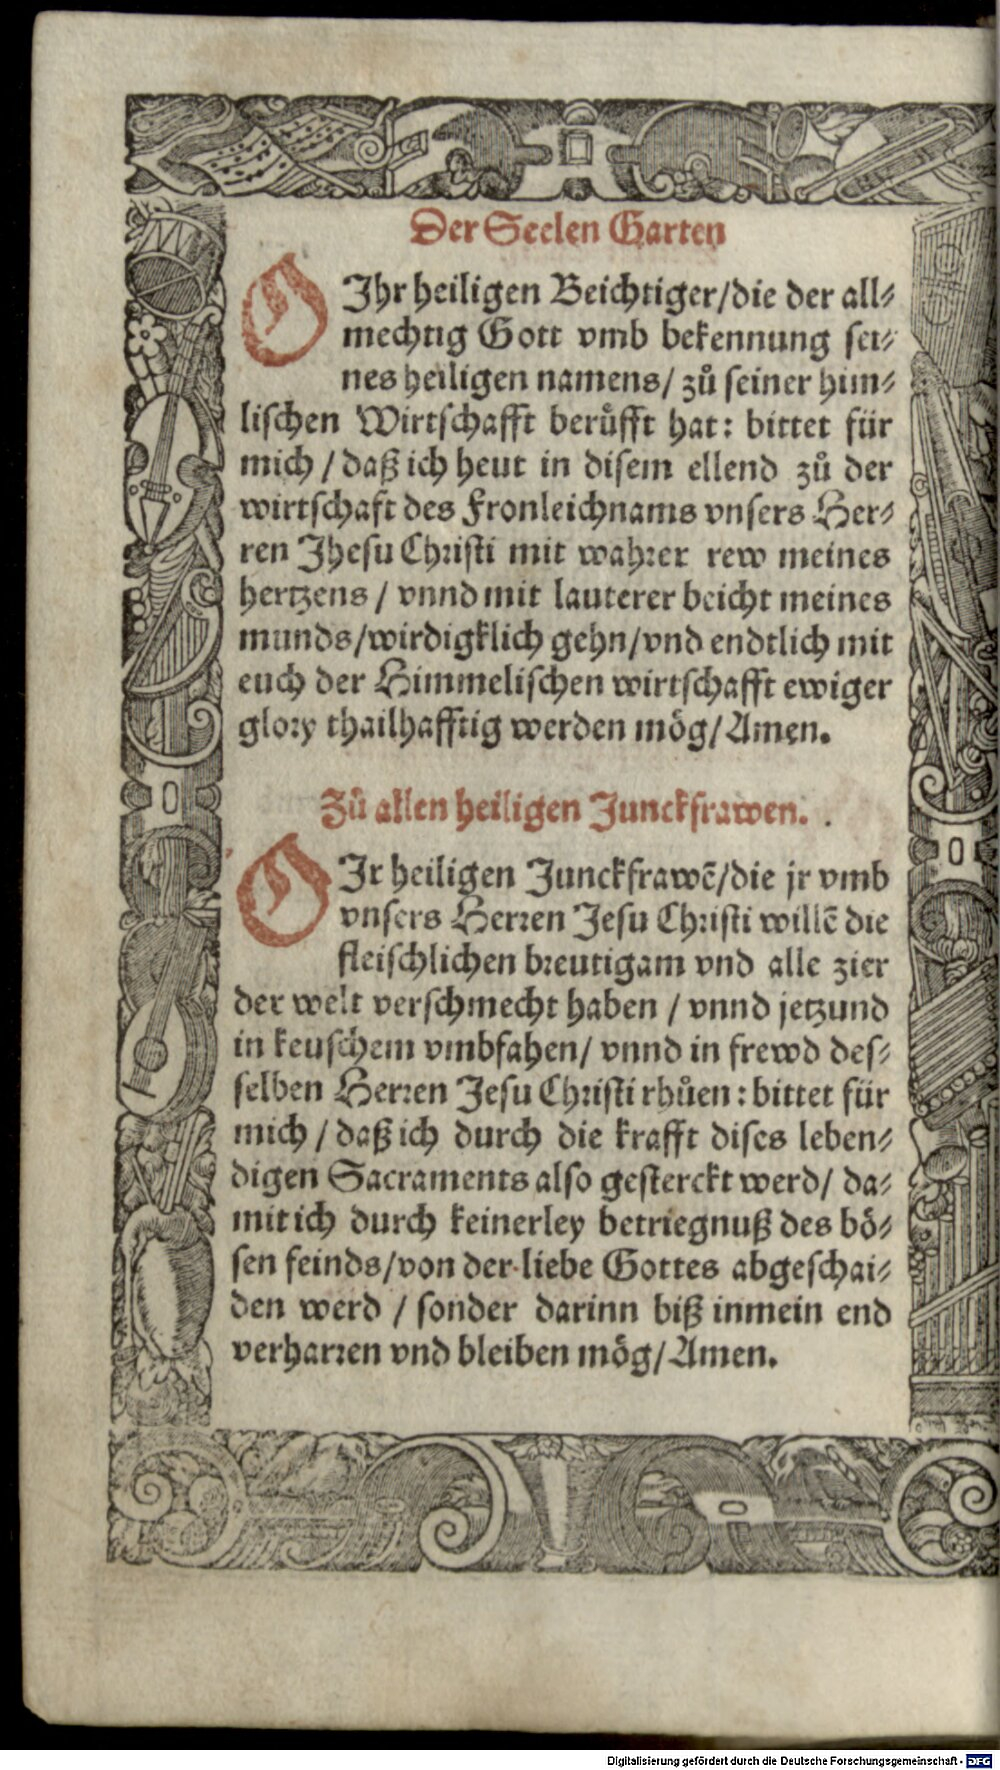 Der Seelen Garten
O Ihr heiligen Beichtiger/die der all⸗
mechtig Gott vmb bekennung sei⸗
nes heiligen namens/ zů seiner him⸗
lischen Wirtschafft berůfft hat: bittet für
mich / daß ich heut in disem ellend zů der
wirtschaft des Fronleichnams vnsers Her⸗
ren Jhesu Christi mit wahrer rew meines
hertzens / vnnd mit lauterer beicht meines
munds/wirdigklich gehn/vnd endtlich mit
euch der Himmelischen wirtschafft ewiger
glory thailhafftig werden mög/Amen.
Zů allen heiligen Junckfrawen.
O Ir heiligen Junckfrawẽ/die jr vmb
vnsers Herren Jesu Christi willẽ die
fleischlichen breutigam vnd alle zier
der welt verschmecht haben / vnnd jetzund
in keuschem vmbfahen/ vnnd in frewd des⸗
selben Herren Jesu Christi rhůen: bittet für
mich / daß ich durch die krafft dises leben⸗
digen Sacraments also gesterckt werd/ da⸗
mit ich durch keinerley betriegnuß des bö⸗
sen feinds/von der liebe Gottes abgeschai⸗
den werd / sonder darinn biß inmein end
verharren vnd bleiben mög/Amen.
Digitalisierung gefördert durch die Deutsche Forschungsgemeinschaft - DFG